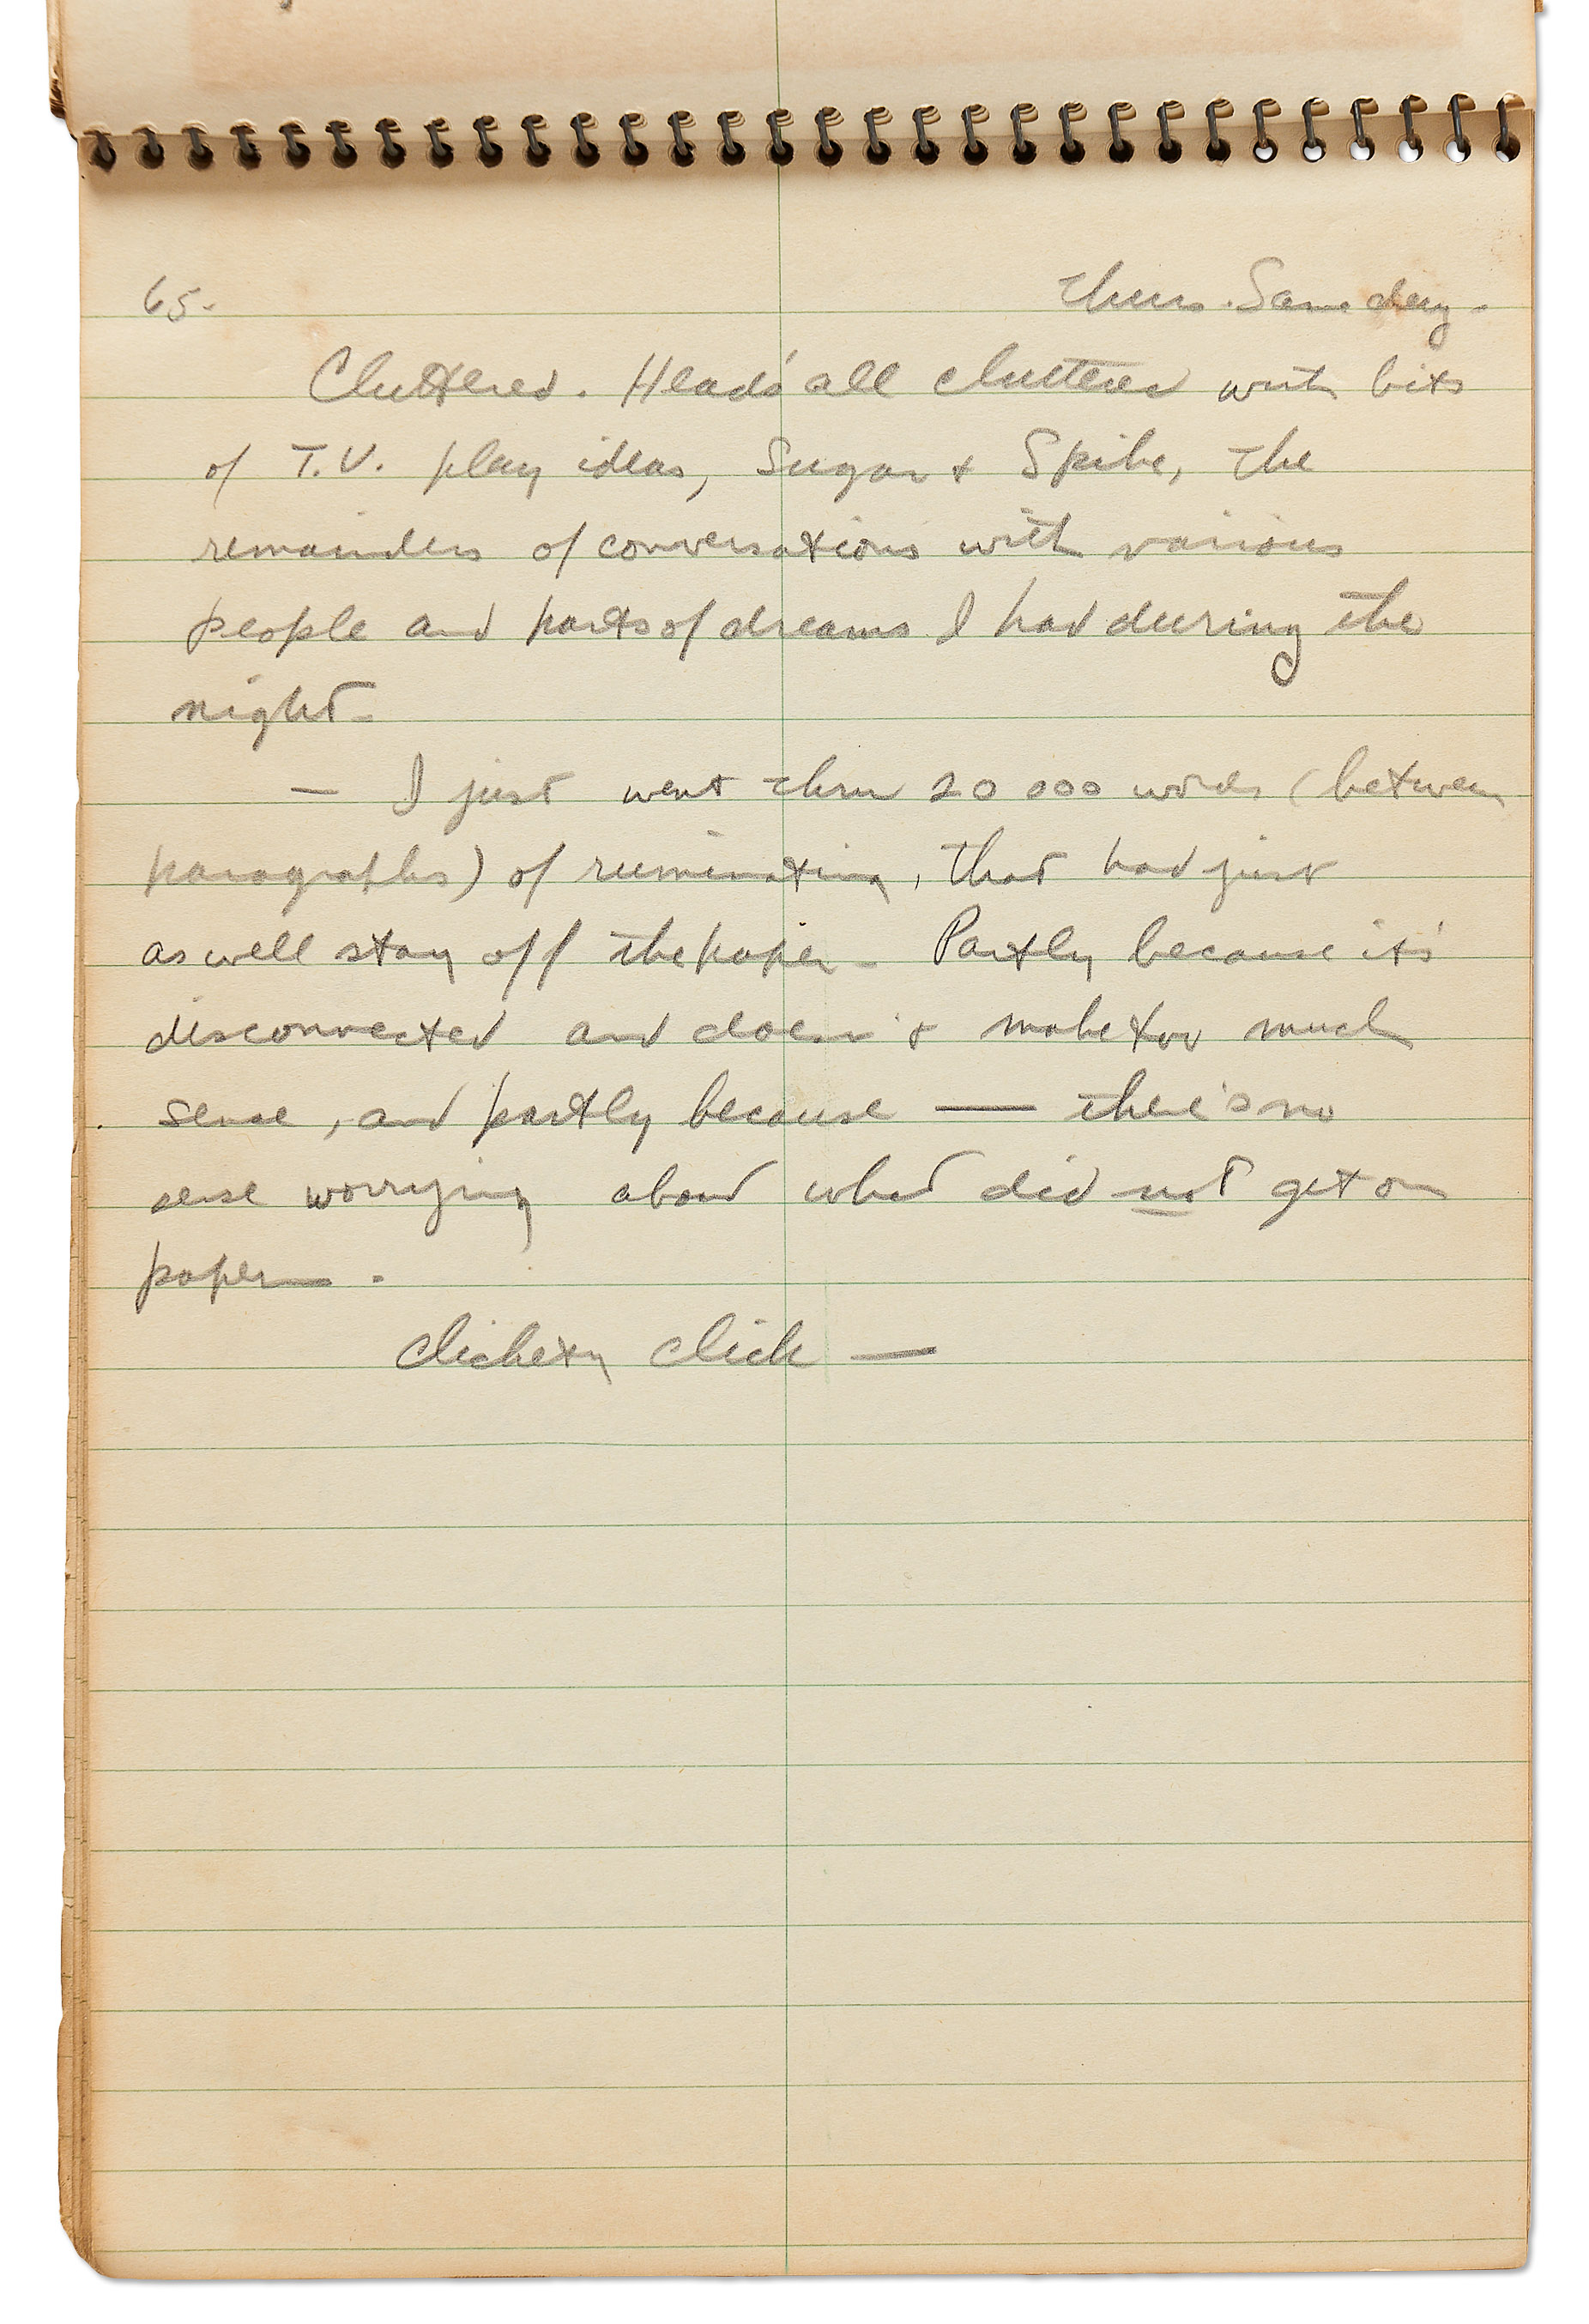 65.
Thurs. Same day -
Cluttered. Head's all cluttered with bits
of T.V. play ideas, Sugar & Spike, the
remainders of conversations with various
people and parts of dreams I had during the
night -
— I just went thru 20 000 words (between
paragraphs) of ruminating, that had just
as well stay off the paper - Partly because it's
disconnected and doesn't make too much
sense, and partly because — there's no
sense worrying about what did not get on
paper -
Clickety click —